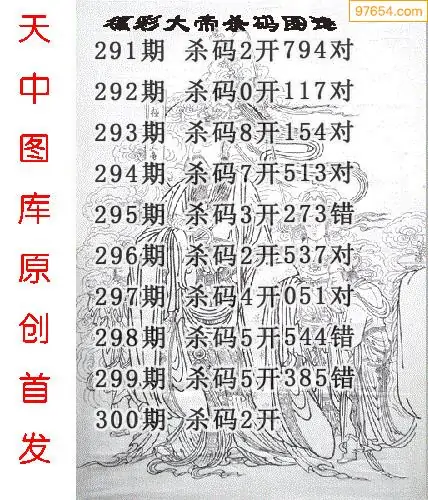 97654.com
福彩大帝杀码图迷
291期 杀码2开794对
292期 杀码0开117对
293期 杀码8开154对
294期 杀码7开513对
295期 杀码3开273错
296期 杀码2开537对
297期 杀码4开051对
298期 杀码5开544错
299期 杀码5开385错
300期 杀码2开
天中图库原创首发